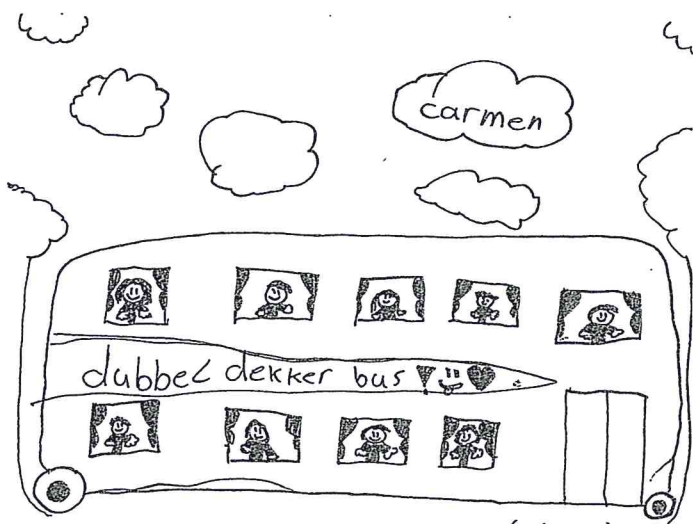 carmen
dubbel dekker bus